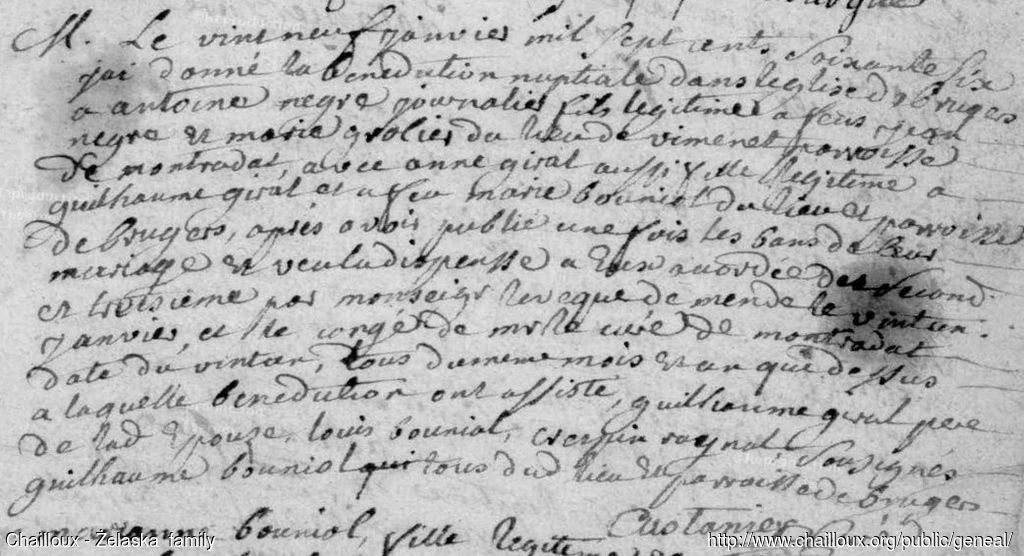 M. Le vint neuf janvier mil sept cents soixante six
jai donné la benediction nuptiale dans leglise de brugers
a antoine negre journalier fils legitime a feus jean
negre et marie grolier du lieu de vimenet parroisse
de montrodat, avec anne giral aussi fille legitime a
guilhaume giral et a feu marie bouniol du lieu et parroisse
de brugers, aprés avoir publié une fois les bans de leur
mariage et veu la dispensse a eux acordée des second
et troisieme par monseigr leveque de mende le vint un
janvier, et le congé de mr le curé de montrodat
daté du vint un, tous du meme mois et an que dessus
a laquelle benediction ont assisté, guilhaume giral pere
de lad epouze, louis bouniol, crespin raynal, sousignés
guilhaume bouniol qui tous dud lieu et parroisse de brugers
Custanier
bouniol, fille legitime
Chailloux - Żelaska family
http://www.chailloux.org/public/geneal/